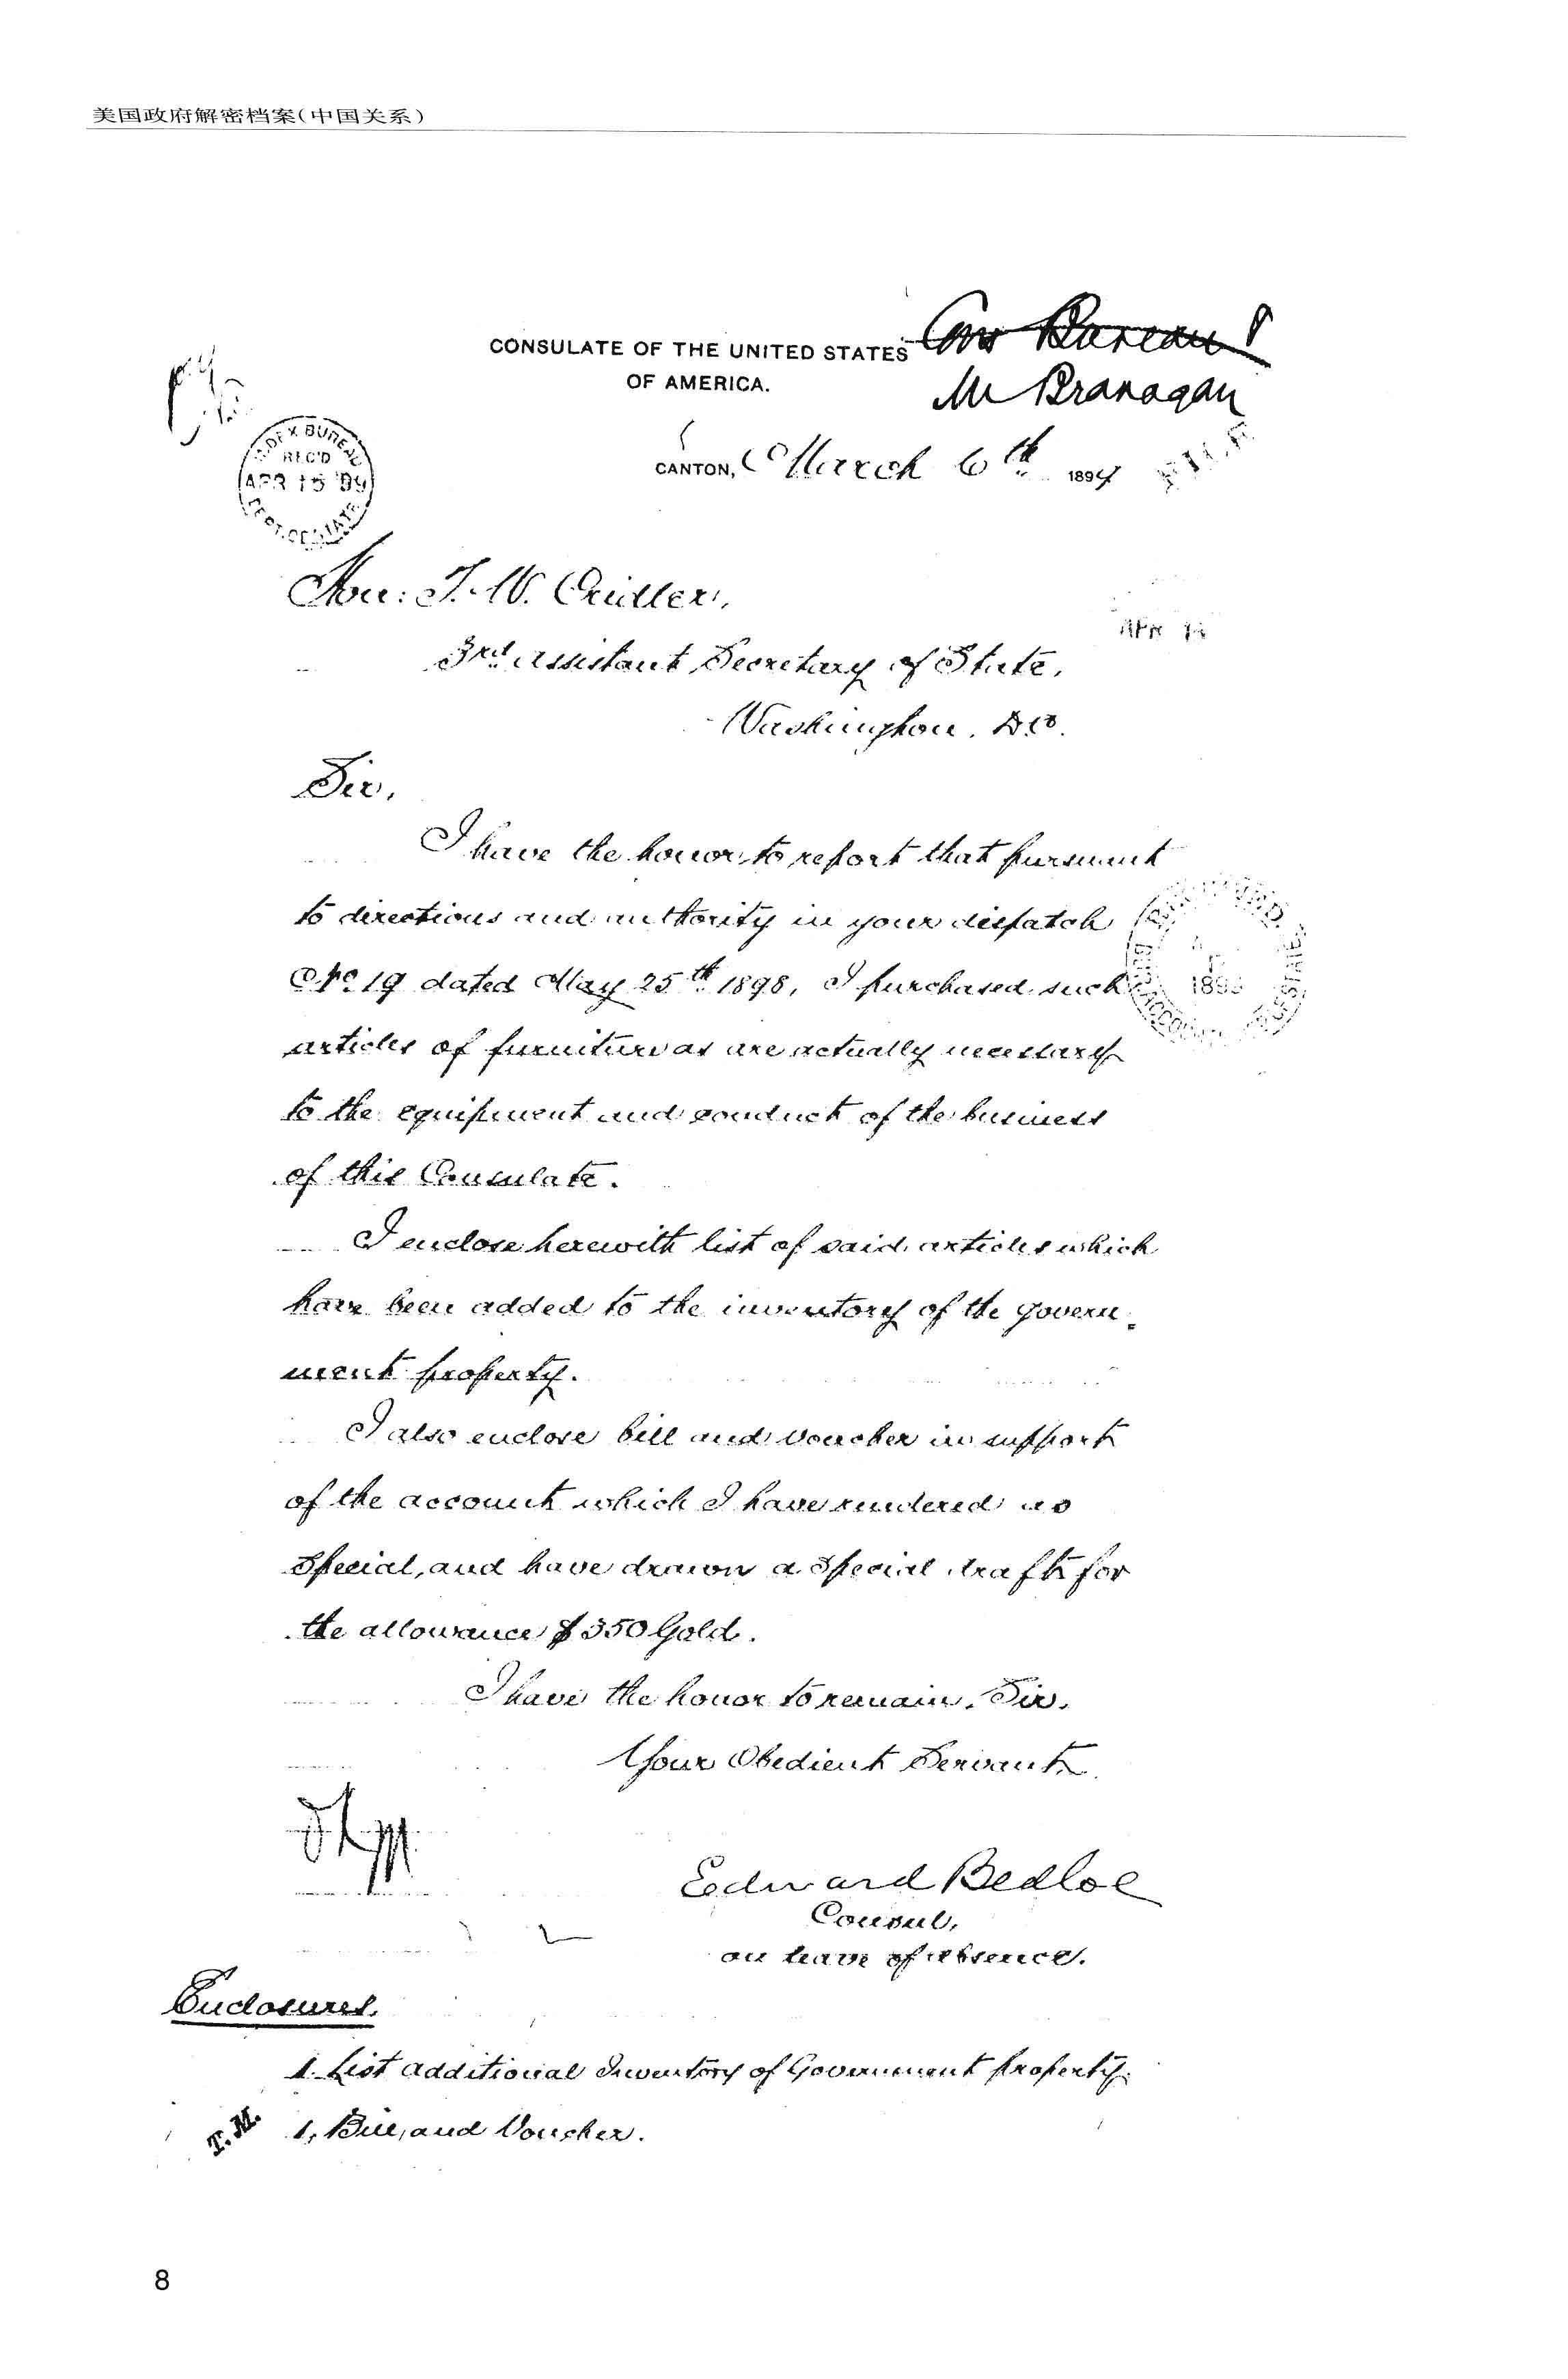 美国政府解密档案(中国关系)
CONSULATE OF THE UNITED STATES
OF AMERICA.
Cons Bureau
Mr Branagan
CANTON, March 6th 1899
INDEX BUREAU
REC'D
APR 15 '99
DEPT. OF STATE
FILE
Hon: T. W. Cridler,
3rd Assistant Secretary of State,
Washington. D.C.
Sir,
I have the honor to report that pursuant
to directions and authority in your dispatch
No 19 dated May 25th 1898, I purchased such
articles of furniture as are actually necessary
to the equipment and conduct of the business
of this Consulate.
I enclose herewith list of said articles which
have been added to the inventory of the govern-
ment property.
I also enclose bill and voucher in support
of the account which I have rendered as
special, and have drawn a special draft for
the allowance $350 Gold.
I have the honor to remain, Sir,
Your Obedient Servant,
Edward Bedloe
Consul,
on leave of absence.
Enclosures.
1. List additional Inventory of Government property.
T.M.
1, Bill, and Voucher.
8